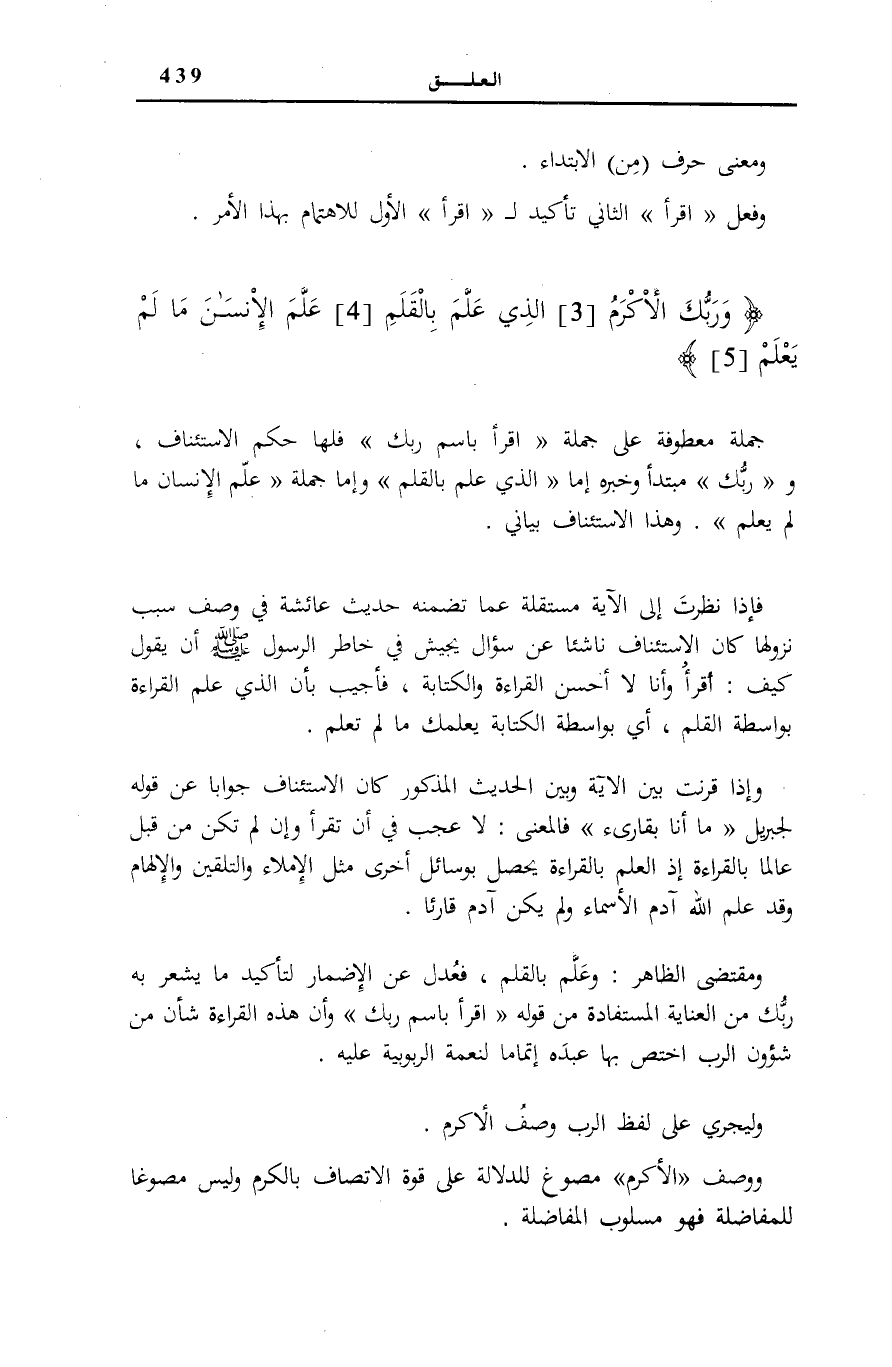 العلـــق 439
ومعنى حرف (مِن) الابتداء .
وفعل « اقرأ » الثاني تأكيد لـ « اقرأ » الأول للاهتمام بهذا الأمر .
﴿ وَرَبُّكَ الْأَكْرَمُ [3] الذِي عَلَّمَ بِالْقَلَمِ [4] عَلَّمَ الإِنْسَـٰنَ مَا لَمْ
يَعْلَمْ [5] ﴾
جملة معطوفة على جملة « اقرأ باسم ربك » فلها حكم الاستئناف ،
و « ربُّك » مبتدأ وخبره إما « الذي علم بالقلم » وإما جملة « علّم الإنسان ما
لم يعلم » . وهذا الاستئناف بياني .
فإذا نظرتَ إلى الآية مستقلة عما تضمنه حديث عائشة في وصف سبب
نزولها كان الاستئناف ناشئا عن سؤال يجيش في خاطر الرسول ﷺ أن يقول
كيف : أقرأُ وأنا لا أحسن القراءة والكتابة ، فأجيب بأن الذي علم القراءة
بواسطة القلم ، أي بواسطة الكتابة يعلمك ما لم تعلم .
وإذا قرنت بين الآية وبين الحديث المذكور كان الاستئناف جوابا عن قوله
لجبريل « ما أنا بقارىء » فالمعنى : لا عجب في أن تقرأ وإن لم تكن من قبل
عالما بالقراءة إذ العلم بالقراءة يحصل بوسائل أخرى مثل الإملاء والتلقين والإلهام
وقد علم الله آدم الأسماء ولم يكن آدم قارئا .
ومقتضى الظاهر : وعَلَّم بالقلم ، فعُدل عن الإِضمار لتأكيد ما يشعر به
ربُّك من العناية المستفادة من قوله « اقرأ باسم ربك » وأن هذه القراءة شأن من
شؤون الرب اختص بها عبدَه إتماما لنعمة الربوبية عليه .
وليجري على لفظ الرب وصفُ الأكرم .
ووصف «الأكرم» مصوغ للدلالة على قوة الاتصاف بالكرم وليس مصوغا
للمفاضلة فهو مسلوب المفاضلة .